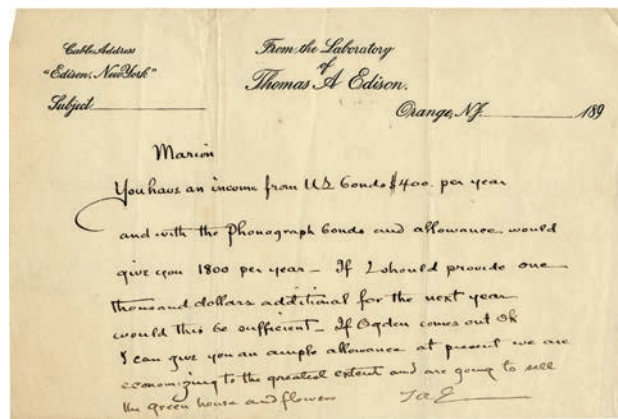 Cable Address
"Edison, New York"
Subject
From the Laboratory
of
Thomas A Edison.
Orange, N.J. 189
Marion
You have an income from US bonds $400. per year
and with the Phonograph bonds and allowance would
give you 1800 per year — If I should provide one
thousand dollars additional for the next year
would this be sufficient — If Ogden comes out Ok
I can give you an ample allowance at present we are
economizing to the greatest extent and are going to sell
the green house and flowers TAE